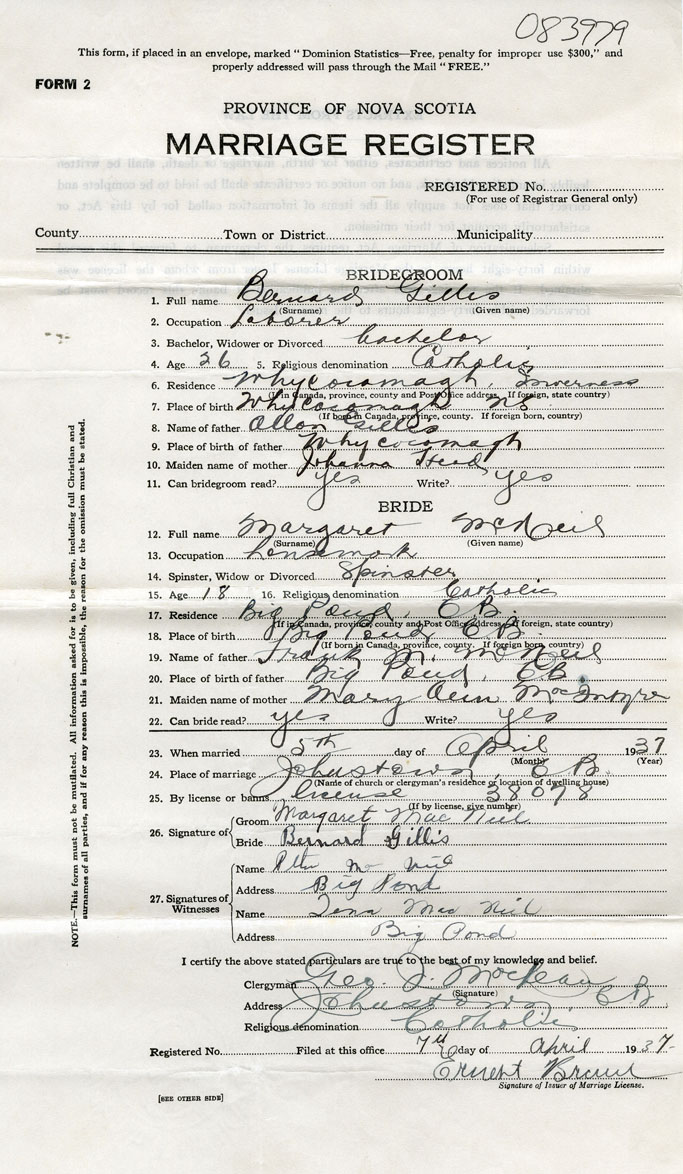 083979
This form, if placed in an envelope, marked "Dominion Statistics—Free, penalty for improper use $300," and
properly addressed will pass through the Mail "FREE."
FORM 2
PROVINCE OF NOVA SCOTIA
MARRIAGE REGISTER
REGISTERED No.
(For use of Registrar General only)
County Town or District Municipality
BRIDEGROOM
1. Full name Bernard Gillis
(Surname) (Given name)
2. Occupation Laborer
3. Bachelor, Widower or Divorced bachelor
4. Age 26 5. Religious denomination Catholic
6. Residence Whycocomagh, Inverness
(If in Canada, province, county and Post Office address. If foreign, state country)
7. Place of birth Whycocomagh NS
(If born in Canada, province, county. If foreign born, country)
8. Name of father Allan Gillis
9. Place of birth of father Whycocomagh
10. Maiden name of mother Johanna
11. Can bridegroom read? yes Write? yes
BRIDE
12. Full name Margaret McNeil
(Surname) (Given name)
13. Occupation housework
14. Spinster, Widow or Divorced Spinster
15. Age 18 16. Religious denomination Catholic
17. Residence Big Pond, C.B.
(If in Canada, province, county and Post Office address. If foreign, state country)
18. Place of birth Big Pond C.B.
(If born in Canada, province, county. If foreign born, country)
19. Name of father Frank M. McNeil
20. Place of birth of father Big Pond, CB
21. Maiden name of mother Mary Ann MacIntyre
22. Can bride read? yes Write? yes
23. When married 5th day of April 1937
(Month) (Year)
24. Place of marriage Johnstown, C.B.
(Name of church or clergyman's residence or location of dwelling house)
25. By license or banns license 38098
(If by license, give number)
26. Signature of
Groom Margaret Mac Neil
Bride Bernard Gillis
27. Signatures of Witnesses
Name Mc Neil
Address Big Pond
Name Mac Neil
Address Big Pond
I certify the above stated particulars are true to the best of my knowledge and belief.
Clergyman Geo. J.
(Signature)
Address Johnstown, CB
Religious denomination Catholic
Registered No. Filed at this office 7th day of April 1937
Ernest
Signature of Issuer of Marriage License.
[SEE OTHER SIDE]
NOTE.—This form must not be mutilated. All information asked for is to be given, including full Christian and
surnames of all parties, and if for any reason this is impossible, the reason for the omission must be stated.